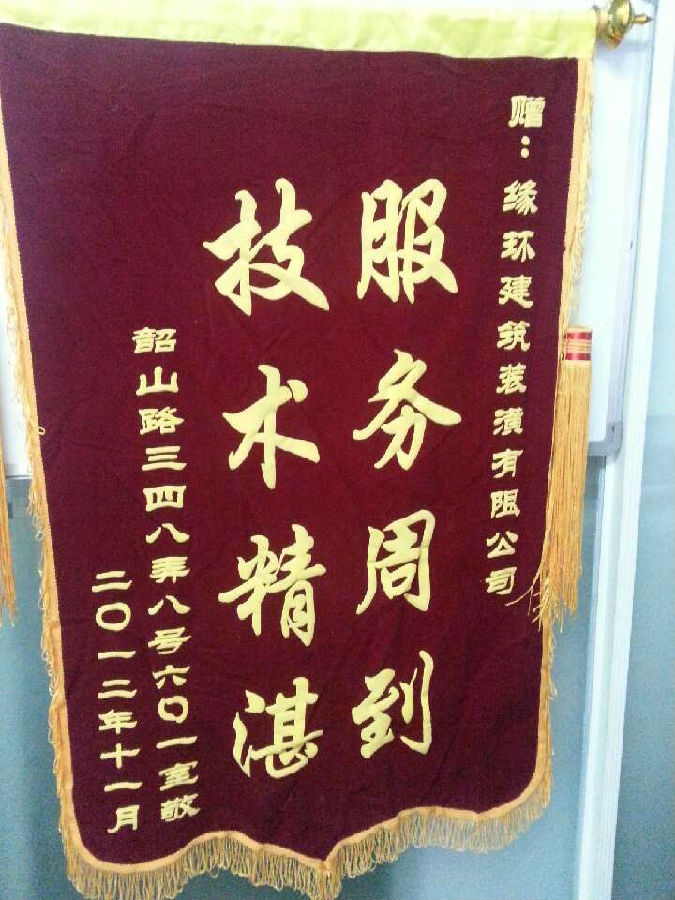 赠：缘环建筑装潢有限公司
服务周到
技术精湛
韶山路三四八弄八号六〇一室敬
二〇一二年十一月